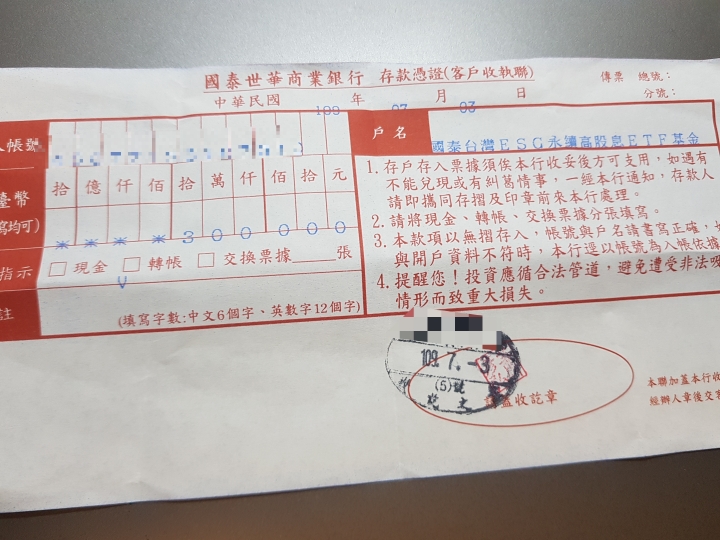 國泰世華商業銀行 存款憑證(客戶收執聯)
傳票 總號：
分號：
中華民國 109 年 07 月 03 日
帳號
戶名
國泰台灣ESG永續高股息ETF基金
臺幣
寫均可)
拾 億 仟 佰 拾 萬 仟 佰 拾 元
* * * * 3 0 0 0 0 0 0
指示 □ 現金 □ 轉帳 □ 交換票據____張
V
註
(填寫字數:中文6個字、英數字12個字)
1. 存戶存入票據須俟本行收妥後方可支用，如遇有
不能兌現或有糾葛情事，一經本行通知，存款人
請即攜同存摺及印章前來本行處理。
2. 請將現金、轉帳、交換票據分張填寫。
3. 本款項以無摺存入，帳號與戶名請書寫正確，如
與開戶資料不符時，本行逕以帳號為入帳依據
4. 提醒您！投資應循合法管道，避免遭受非法吸
情形而致重大損失。
109. 7. -3
(5)號
蓋收訖章
本聯加蓋本行收
經辦人章後交客